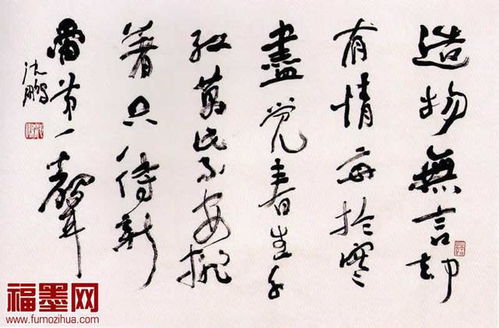 造物無言却
有情每於寒
盡覺春生千
紅萬紫安排
著只待新
雷第一聲
沈鵬
福墨网
www.fumozihua.com